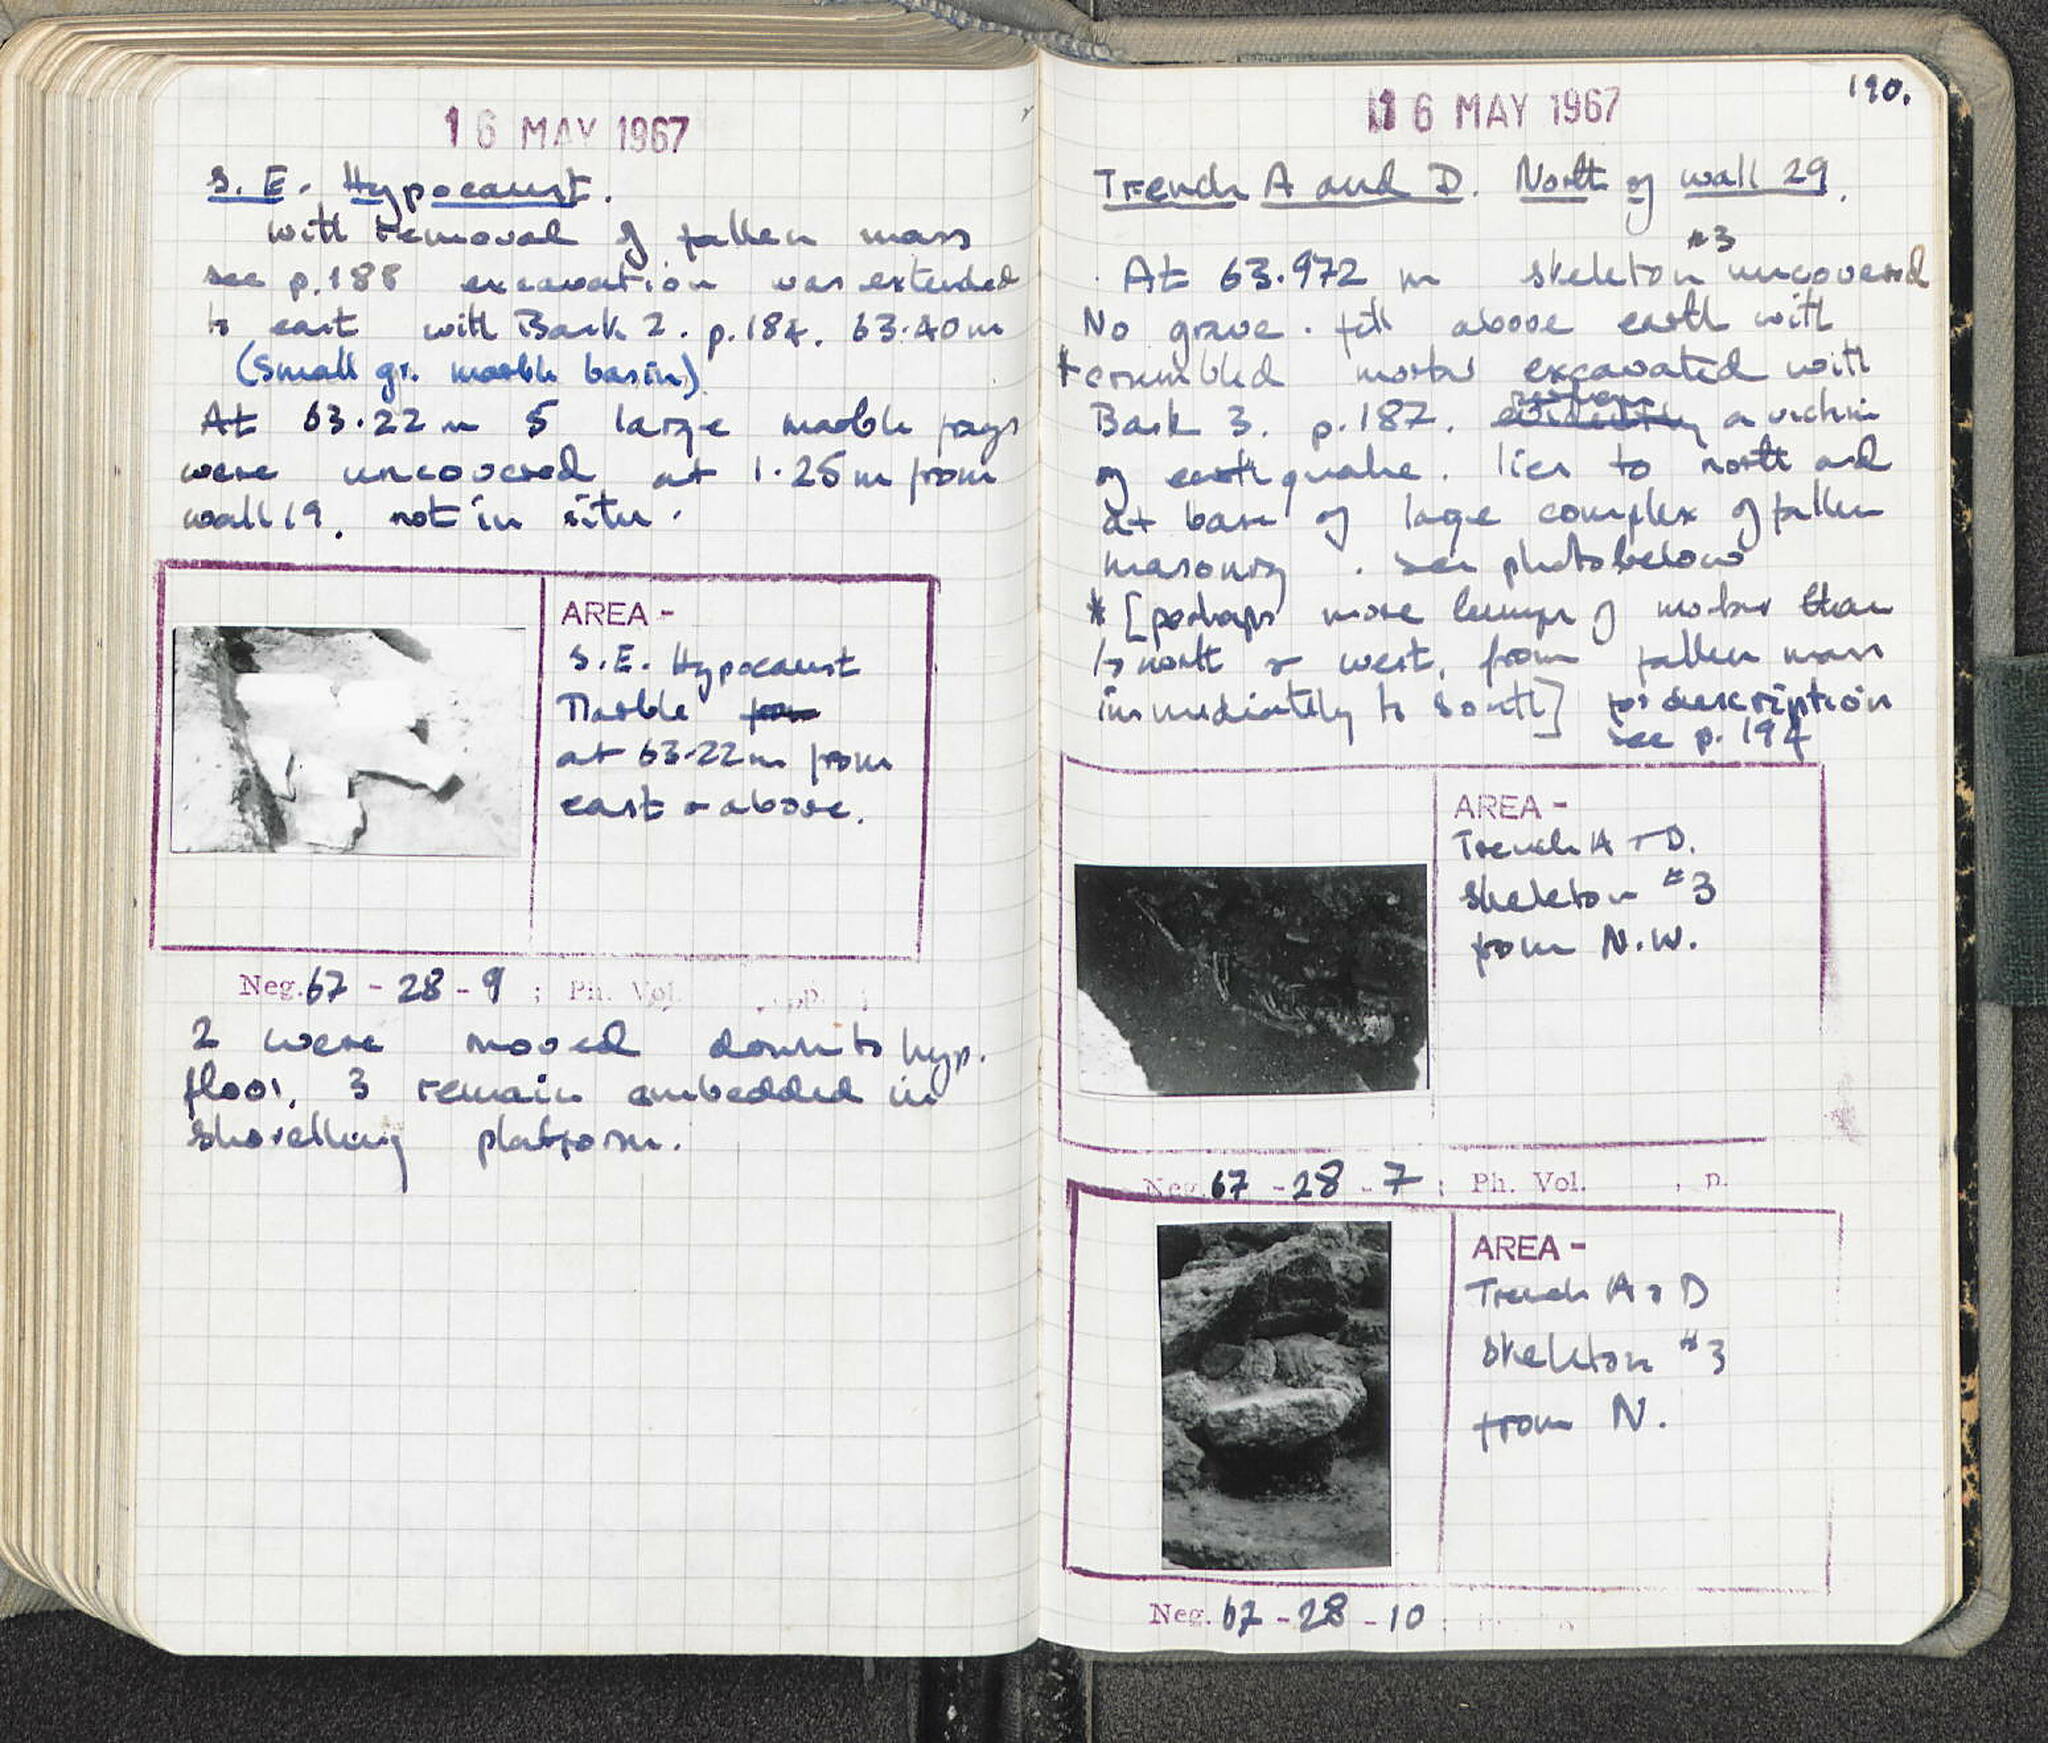 16 MAY 1967
S.E. Hypocaust.
with removal of fallen mass
see p.188 excavation was extended
to east with Bask 2. p.184. 63.40m
(small gr. marble basin)
At 63.22m 5 large marble frags
were uncovered at 1.25m from
wall 19. not in situ.
AREA -
S.E. Hypocaust
Marble
at 63.22m from
east & above.
Neg. 67 - 28 - 9 ; Ph. Vol.
2 were moved down to hyp.
floor, 3 remain embedded in
shovelling platform.
190.
16 MAY 1967
Trench A and D. North of wall 29.
#3
At 63.972 m skeleton uncovered
No grave. fill above earth with
* crumbled mortar excavated with
Bask 3. p.187. a victim
of earthquake. lies to north and
at base of large complex of fallen
masonry. see photo below
* [perhaps more lumps of mortar than
to north & west, from fallen mass
immediately to south] for description
see p. 194
AREA -
Trench A + D.
Skeleton #3
from N.W.
Neg. 67 - 28 - 7 ; Ph. Vol. , p.
AREA -
Trench A & D
Skeleton #3
from N.
Neg. 67 - 28 - 10 ;